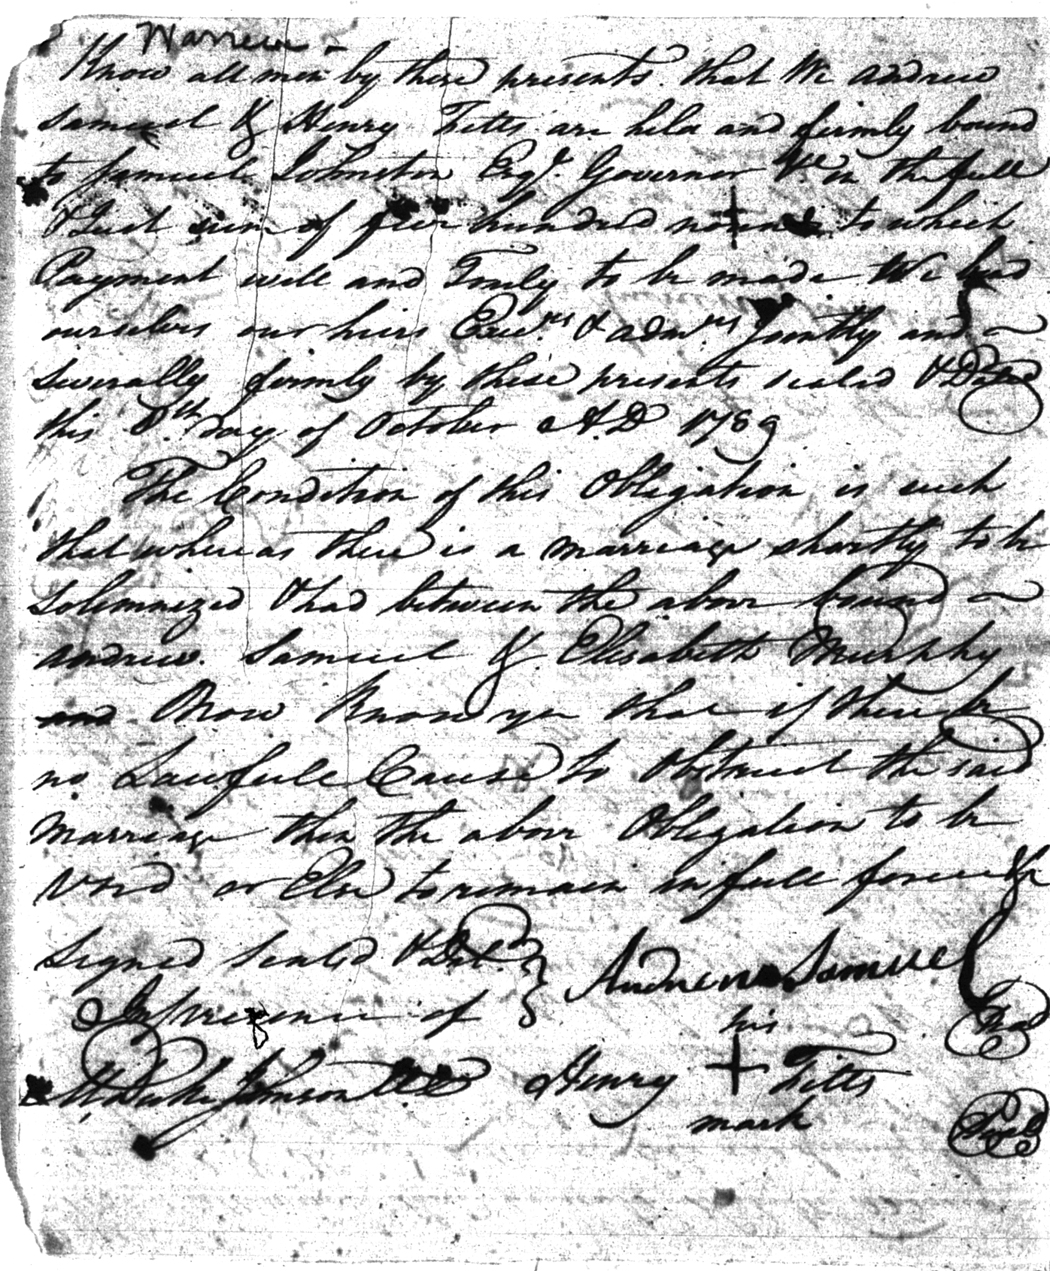 Warren -
Know all men by these presents that We Andrew
Samuel & Henry Fitts are held and firmly bound
to Samuel Johnston Esqr. Governor &c in the full
& Just sum of five hundred pounds to which
Payment well and Truly to be made We bind
ourselves our heirs Exers & admrs Jointly and
severally firmly by these presents sealed & Dated
this 8th day of October A.D 1789
The Condition of this Obligation is such
that whereas there is a marriage shortly to be
Solemnized & had between the above bound
Andrew Samuel & Elisabeth Murphy
and Now Know ye that if there be
no Lawfull Cause to Obstruct the said
Marriage then the above Obligation to be
Void or Else to remain in full force &c
Signed Sealed & Del.
In presence of
Andrew Samuel
Seal
M Duke Johnson
his
Henry + Fitts
mark
Seal